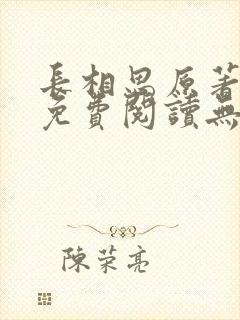 長相思原著
免費閱讀無
陳荣亮